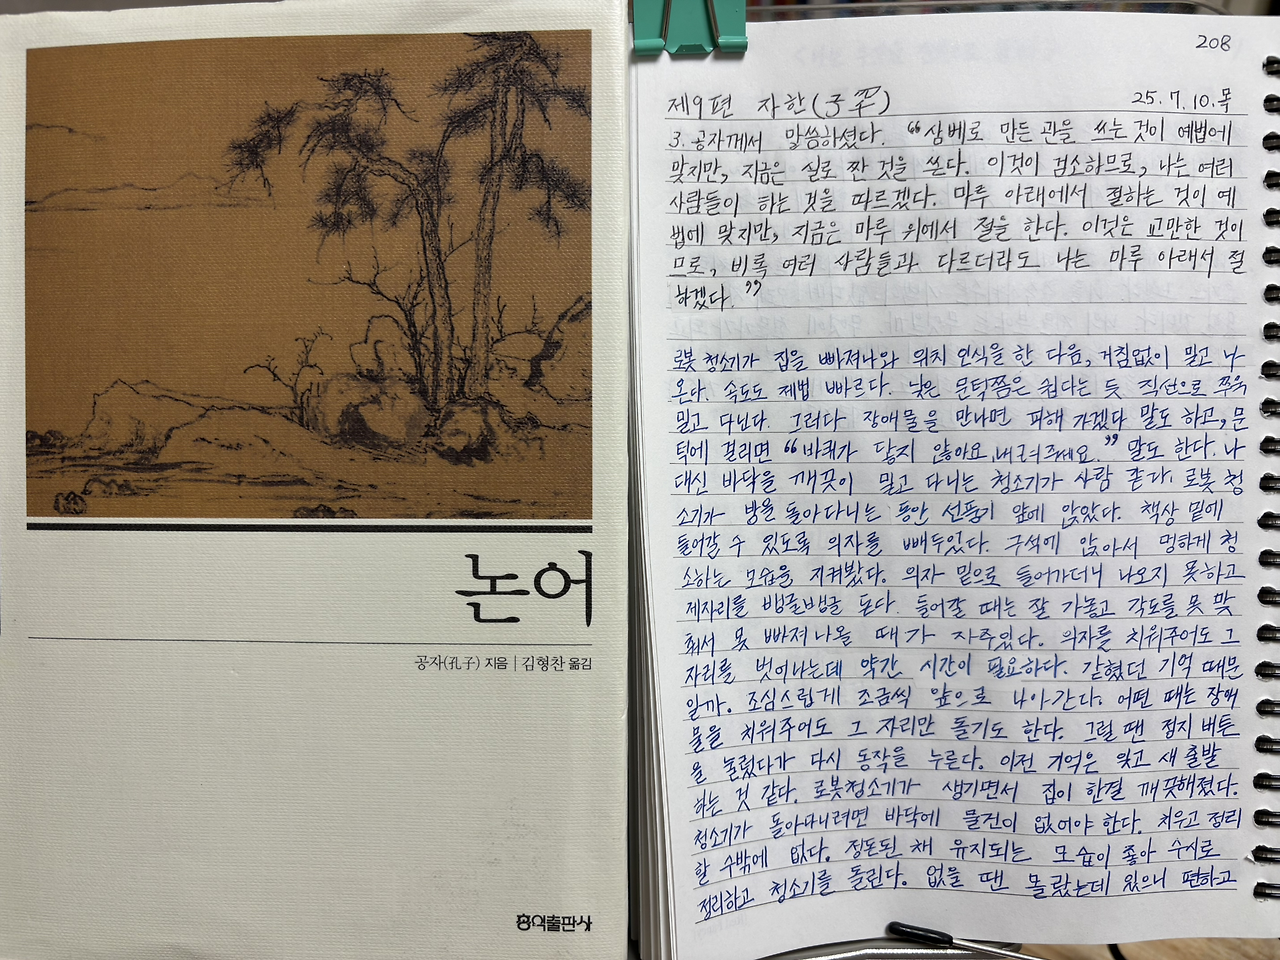 논어
공자(孔子) 지음 | 김형찬 옮김
홍익출판사
208
제9편 자한(子罕) 25.7.10.목
3. 공자께서 말씀하셨다. “삼베로 만든 관을 쓰는 것이 예법에
맞지만, 지금은 실로 짠 것을 쓴다. 이것이 검소하므로, 나는 여러
사람들이 하는 것을 따르겠다. 마루 아래에서 절하는 것이 예
법에 맞지만, 지금은 마루 위에서 절을 한다. 이것은 교만한 것이
므로, 비록 여러 사람들과 다르더라도 나는 마루 아래서 절
하겠다.”
로봇 청소기가 집을 빠져나와 위치 인식을 한 다음, 거침없이 밀고 나
온다. 속도도 제법 빠르다. 낮은 문턱쯤은 쉽다는 듯 직선으로 쭈욱
밀고 다닌다. 그러다 장애물을 만나면 피해 가겠다 말도 하고, 문
턱에 걸리면 “바퀴가 닿지 않아요. 내려주세요.” 말도 한다. 나
대신 바닥을 깨끗이 밀고 다니는 청소기가 사람 같다. 로봇 청
소기가 방을 돌아다니는 동안 선풍기 앞에 앉았다. 책상 밑에
들어갈 수 있도록 의자를 빼두었다. 구석에 앉아서 멍하게 청
소하는 모습을 지켜봤다. 의자 밑으로 들어가더니 나오지 못하고
제자리를 뱅글뱅글 돈다. 들어갈 때는 잘 가놓고 각도를 못 맞
춰서 못 빠져 나올 때가 자주있다. 의자를 치워주어도 그
자리를 벗어나는데 약간 시간이 필요하다. 갇혔던 기억 때문
일까. 조심스럽게 조금씩 앞으로 나아간다. 어떤 때는 장애
물을 치워주어도 그 자리만 돌기도 한다. 그럴 땐 정지 버튼
을 눌렀다가 다시 동작을 누른다. 이전 기억은 잊고 새 출발
하는 것 같다. 로봇청소기가 생기면서 집이 한결 깨끗해졌다.
청소기가 돌아다니려면 바닥에 물건이 없어야 한다. 치우고 정리
할 수밖에 없다. 정돈된 채 유지되는 모습이 좋아 수시로
정리하고 청소기를 돌린다. 없을 땐 몰랐는데 있으니 편하고